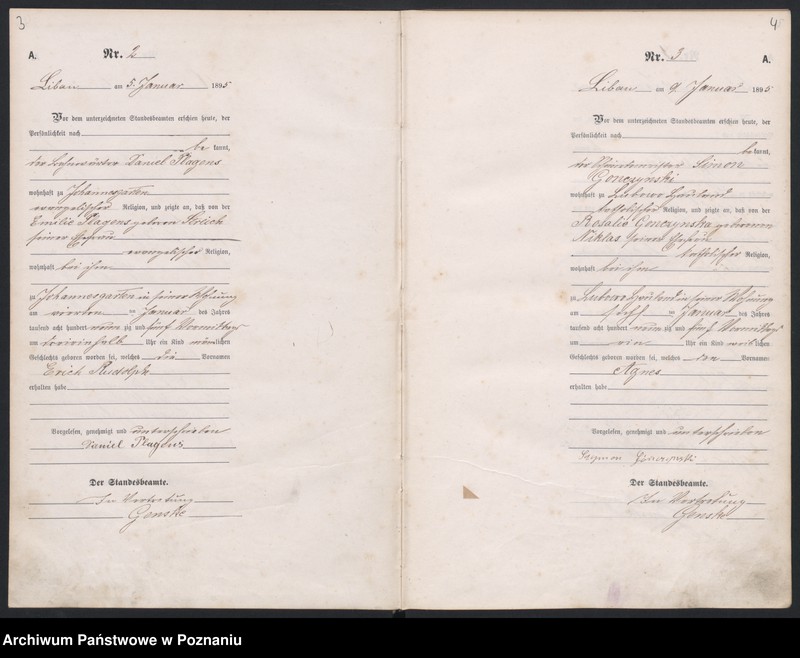 3
A.
Nr. 2
Libau am 5. Januar 1895
Vor dem unterzeichneten Standesbeamten erschien heute, der
Persönlichkeit nach
be kannt,
der Daniel Plagens
wohnhaft zu Johannesgarten
evangelischer Religion, und zeigte an, daß von der
Emilie Plagens geboren Streich
seiner Ehefrau
evangelischer Religion,
wohnhaft bei ihm
zu Johannesgarten in seiner Wohnung
am vierten ten Januar des Jahres
tausend acht hundert neun zig und fünf Vormittags
um Uhr ein Kind männlichen
Geschlechts geboren worden sei, welches die Vornamen
Erich Rudolph
erhalten habe
Vorgelesen, genehmigt und unterschrieben
Daniel Plagens
Der Standesbeamte.
In Vertretung
Genske
4
Nr. 3
A.
Libau am 9 Januar 1895
Vor dem unterzeichneten Standesbeamten erschien heute, der
Persönlichkeit nach
be kannt,
der Simon
Gonczynski
wohnhaft zu Lubowo Hauland
katholischer Religion, und zeigte an, daß von der
Rosalia Gonczynska geborenen
Niklas seiner Ehefrau
katholischer Religion,
wohnhaft bei ihm
zu Lubowo Hauland in seiner Wohnung
am ten Januar des Jahres
tausend acht hundert neun zig und fünf Vormittags
um ein Uhr ein Kind weiblichen
Geschlechts geboren worden sei, welches den Vornamen
Agnes
erhalten habe
Vorgelesen, genehmigt und unterschrieben
Der Standesbeamte.
In Vertretung
Genske
Archiwum Państwowe w Poznaniu